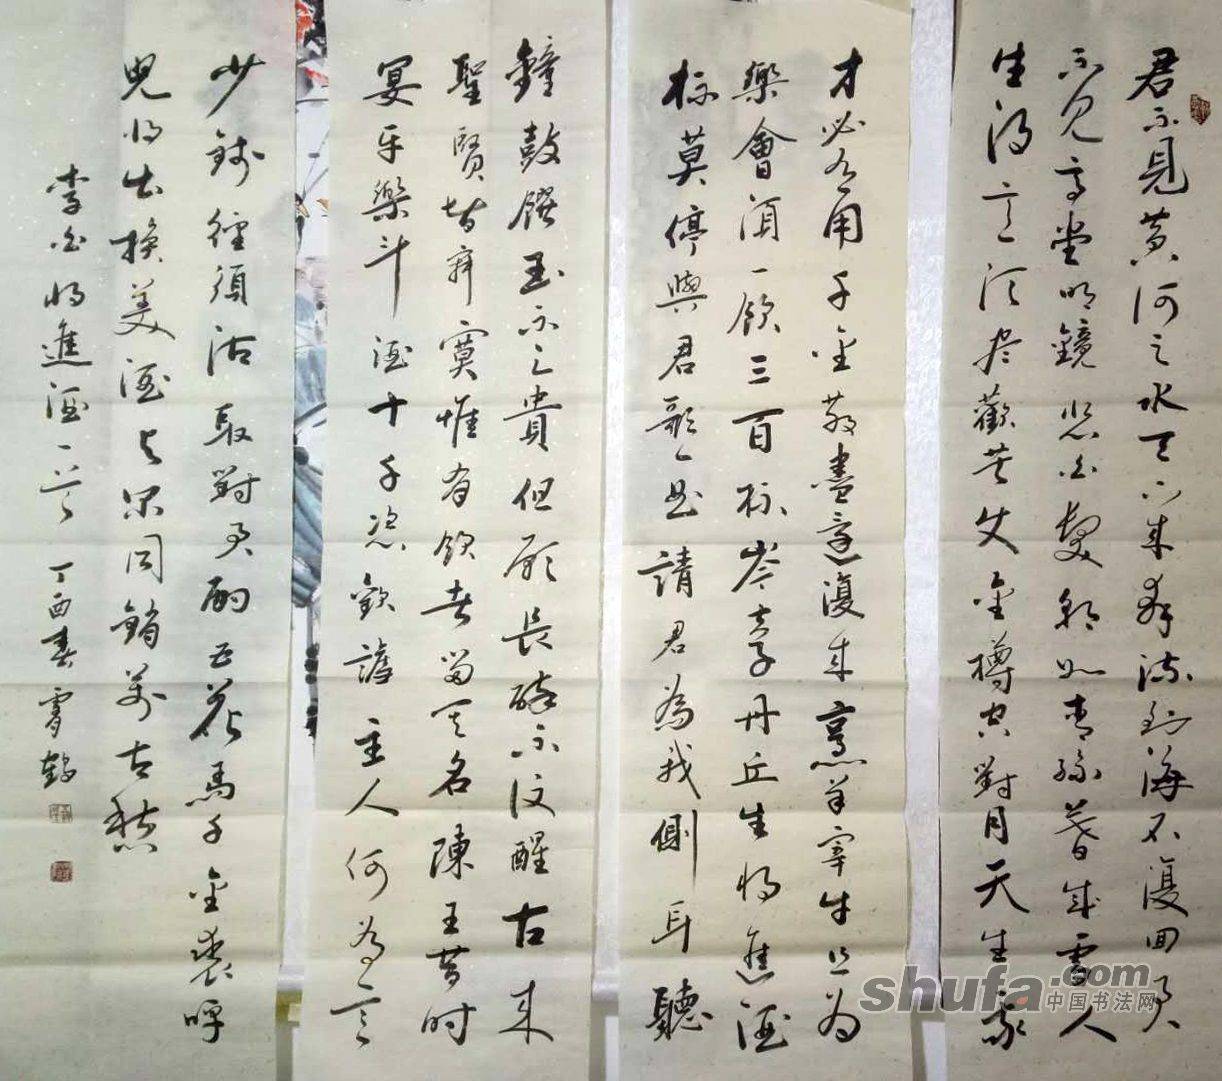 君不見黃河之水天上来奔流到海不復回君
不見高堂明鏡悲白髮朝如青絲暮成雪人
生得意須尽歡莫使金樽空對月天生我
才必有用千金散盡還復来烹羊宰牛且为
樂會須一飲三百杯岑夫子丹丘生将進酒
杯莫停與君歌一曲請君為我側耳聽
鐘鼓饌玉不足貴但願長醉不復醒古来
聖賢皆寂寞惟有飲者留其名陳王昔时
宴平樂斗酒十千恣歡謔主人何為言
少錢徑須沽取對君酌五花馬千金裘呼
兒将出換美酒与尔同銷萬古愁
李白将進酒一首 丁酉春雪鶴
shufa.com
中国书法网